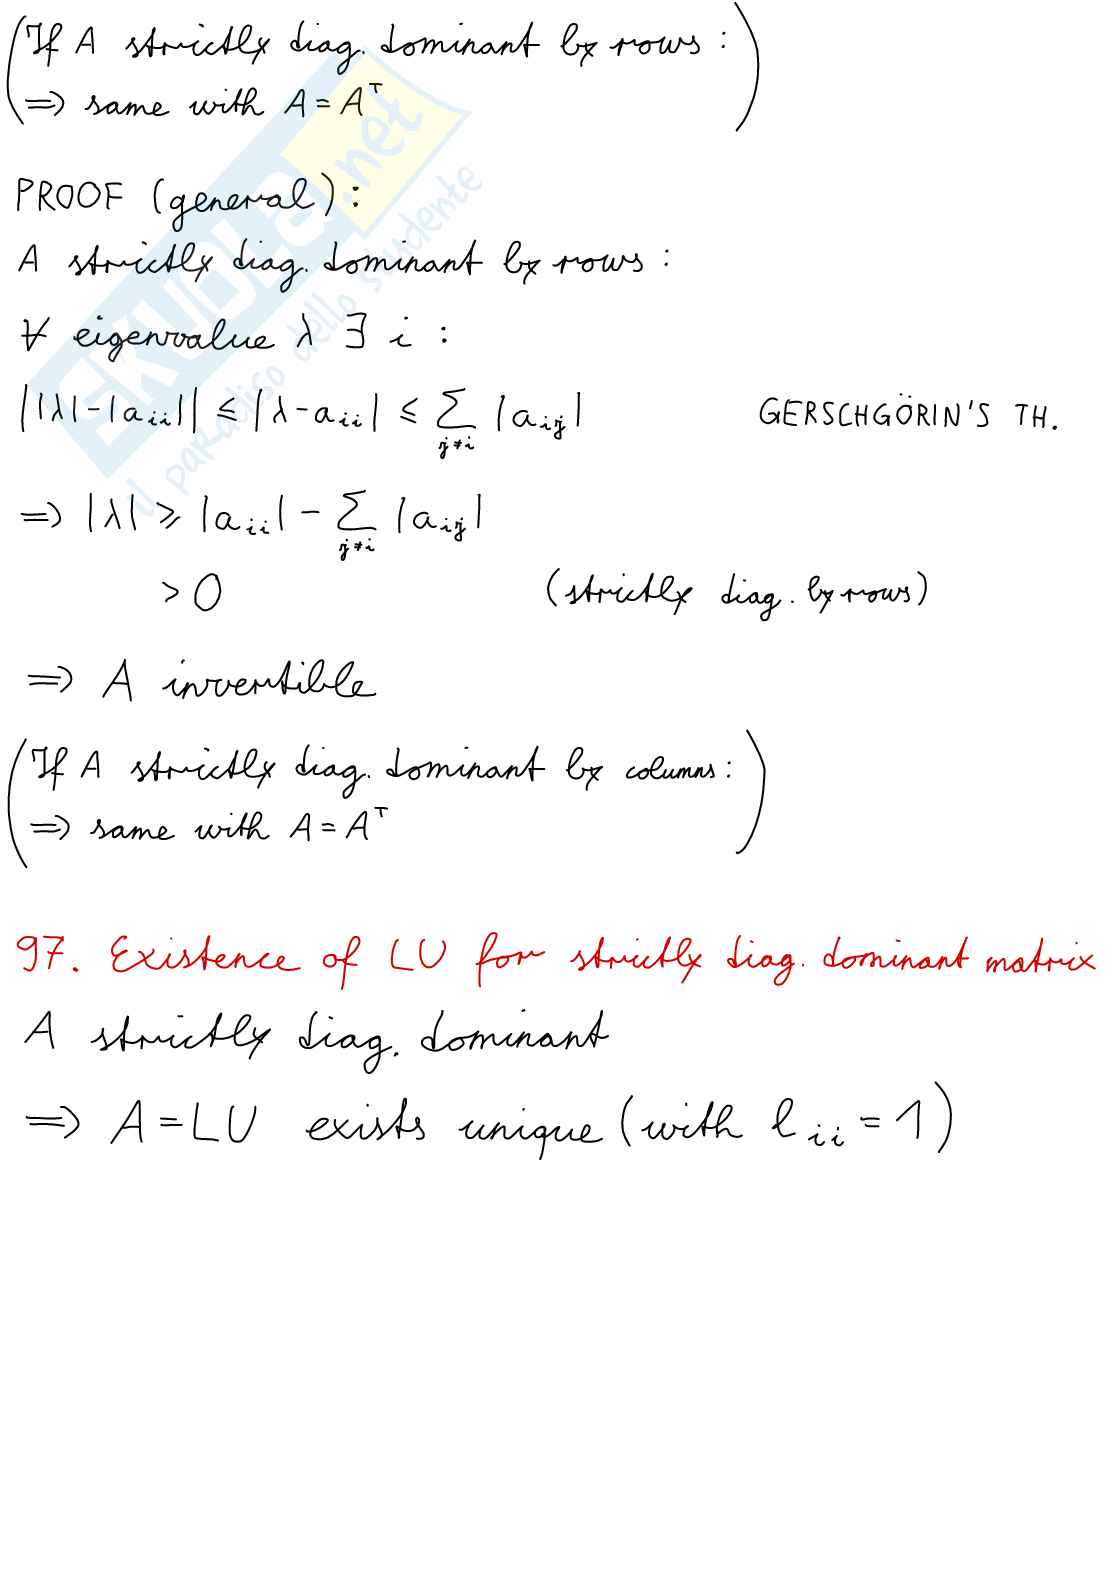 (If A strictly diag. dominant by rows :
⇒ same with A = Aᵀ)
PROOF (general) :
A strictly diag. dominant by rows :
∀ eigenvalue λ ∃ i :
||λ| - |a_ii|| ≤ |λ - a_ii| ≤ ∑_{j≠i} |a_ij| GERSCHGÖRIN'S TH.
⇒ |λ| ≥ |a_ii| - ∑_{j≠i} |a_ij|
> 0 (strictly diag. by rows)
⇒ A invertible
(If A strictly diag. dominant by columns :
⇒ same with A = Aᵀ)
97. Existence of LU for strictly diag. dominant matrix
A strictly diag. dominant
⇒ A = LU exists unique (with l_ii = 1)
SKUOLA.net
il paradiso dello studente